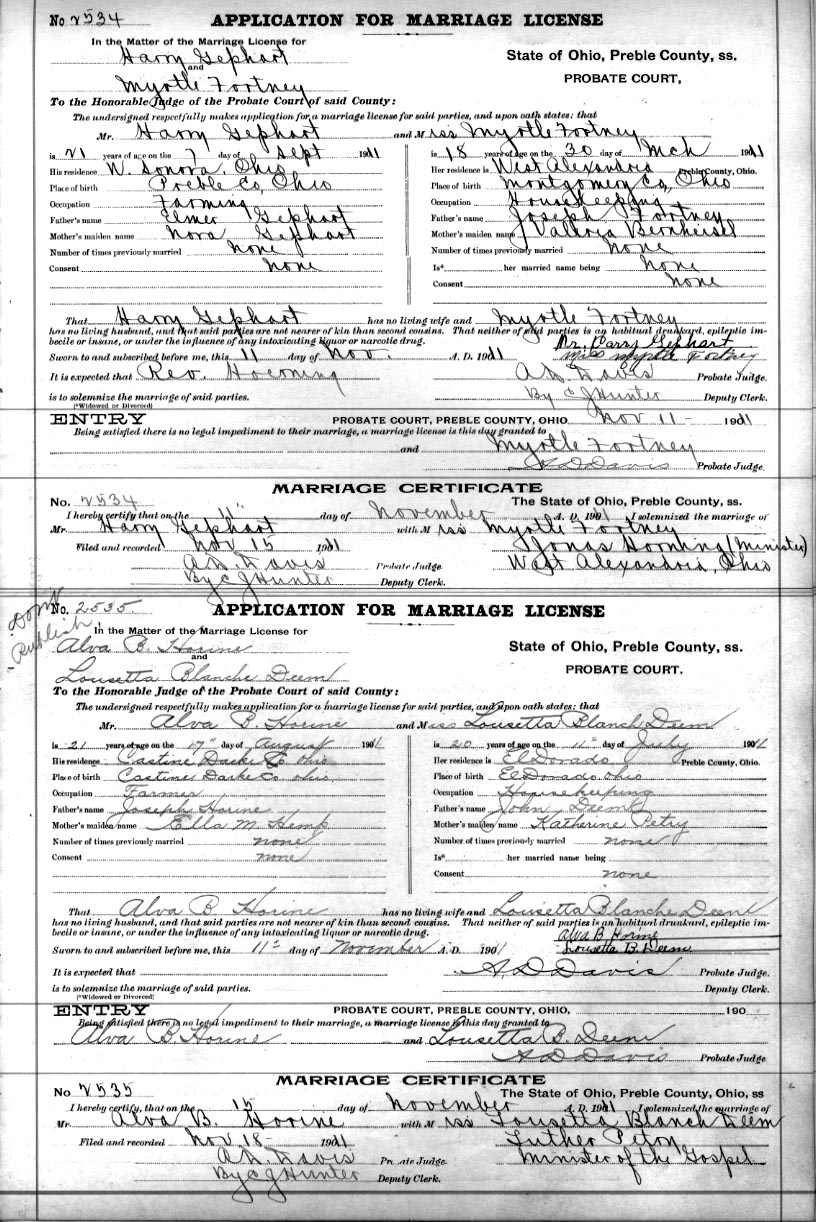 No 2534 APPLICATION FOR MARRIAGE LICENSE
In the Matter of the Marriage License for
Harry Gephart
and
Myrtle Fortney
State of Ohio, Preble County, ss.
PROBATE COURT,
To the Honorable Judge of the Probate Court of said County:
The undersigned respectfully makes application for a marriage license for said parties, and upon oath states: that
Mr. Harry Gephart and Miss Myrtle Fortney
is 21 years of age on the 7 day of Sept 1911
His residence W. Sonora, Ohio
Place of birth Preble Co, Ohio
Occupation Farming
Father's name Elmer Gephart
Mother's maiden name Nora Gephart
Number of times previously married none
Consent none
is 18 years of age on the 30 day of Mch 1911
Her residence is West Alexandria Preble County, Ohio.
Place of birth Montgomery Co, Ohio
Occupation Housekeeping
Father's name Joseph Fortney
Mother's maiden name Valleria Bernheisel
Number of times previously married none
Is* her married name being none
Consent none
That Harry Gephart has no living wife and Myrtle Fortney
has no living husband, and that said parties are not nearer of kin than second cousins. That neither of said parties is an habitual drunkard, epileptic im-
becile or insane, or under the influence of any intoxicating liquor or narcotic drug.
Mr. Harry Gephart
Sworn to and subscribed before me, this 11 day of Nov. A. D. 1911 Miss Myrtle Fortney
It is expected that Rev. A D Davis Probate Judge.
is to solemnize the marriage of said parties. By C J Hunter Deputy Clerk.
(*Widowed or Divorced)
ENTRY PROBATE COURT, PREBLE COUNTY, OHIO Nov 11- 1911
Being satisfied there is no legal impediment to their marriage, a marriage license is this day granted to
and Myrtle Fortney
A D Davis Probate Judge.
MARRIAGE CERTIFICATE
No. 2534 The State of Ohio, Preble County, ss.
I hereby certify that on the 11" day of November A. D. 1911 I solemnized the marriage of
Mr. Harry Gephart with Miss Myrtle Fortney
Filed and recorded Nov 15 1911 Jonas Horning (Minister)
A D Davis Probate Judge. West Alexandria, Ohio
By C J Hunter Deputy Clerk.
Dont Publish
No. 2535. APPLICATION FOR MARRIAGE LICENSE
In the Matter of the Marriage License for
Alva B. Horine
and
Lousetta Blanche Deem
State of Ohio, Preble County, ss.
PROBATE COURT.
To the Honorable Judge of the Probate Court of said County:
The undersigned respectfully makes application for a marriage license for said parties, and upon oath states: that
Mr. Alva B. Horine and Miss Lousetta Blanch Deem
is 21 years of age on the 17" day of August 1911
His residence Castine Darke Co Ohio
Place of birth Castine Darke Co Ohio
Occupation Farmer
Father's name Joseph Horine
Mother's maiden name Ella M Hemp
Number of times previously married none
Consent none
is 20 years of age on the 11" day of July 1911
Her residence is ElDorado Preble County, Ohio.
Place of birth ElDorado Ohio
Occupation Housekeeping
Father's name John Deem
Mother's maiden name Katherine Petry
Number of times previously married none
Is* her married name being
Consent none
That Alva B Horine has no living wife and Lousetta Blanche Deem
has no living husband, and that said parties are not nearer of kin than second cousins. That neither of said parties is an habitual drunkard, epileptic im-
becile or insane, or under the influence of any intoxicating liquor or narcotic drug. Alva B Horine
Sworn to and subscribed before me, this 11" day of November A.D. 1901 Lousetta B. Deem
It is expected that A D Davis Probate Judge.
is to solemnize the marriage of said parties. Deputy Clerk.
(*Widowed or Divorced)
ENTRY PROBATE COURT, PREBLE COUNTY, OHIO, 190
Being satisfied there is no legal impediment to their marriage, a marriage license is this day granted to
Alva B. Horine and Lousetta B. Deem
A D Davis Probate Judge
MARRIAGE CERTIFICATE
No 2535 The State of Ohio, Preble County, Ohio, ss
I hereby certify, that on the 15 day of November A. D. 1911 I solemnized the marriage of
Mr. Alva B. Horine with Miss Lousetta Blanch Deem
Filed and recorded Nov 18- 1911 Luther Petry
A D Davis Probate Judge. Minister of the Gospel
By C J Hunter Deputy Clerk.